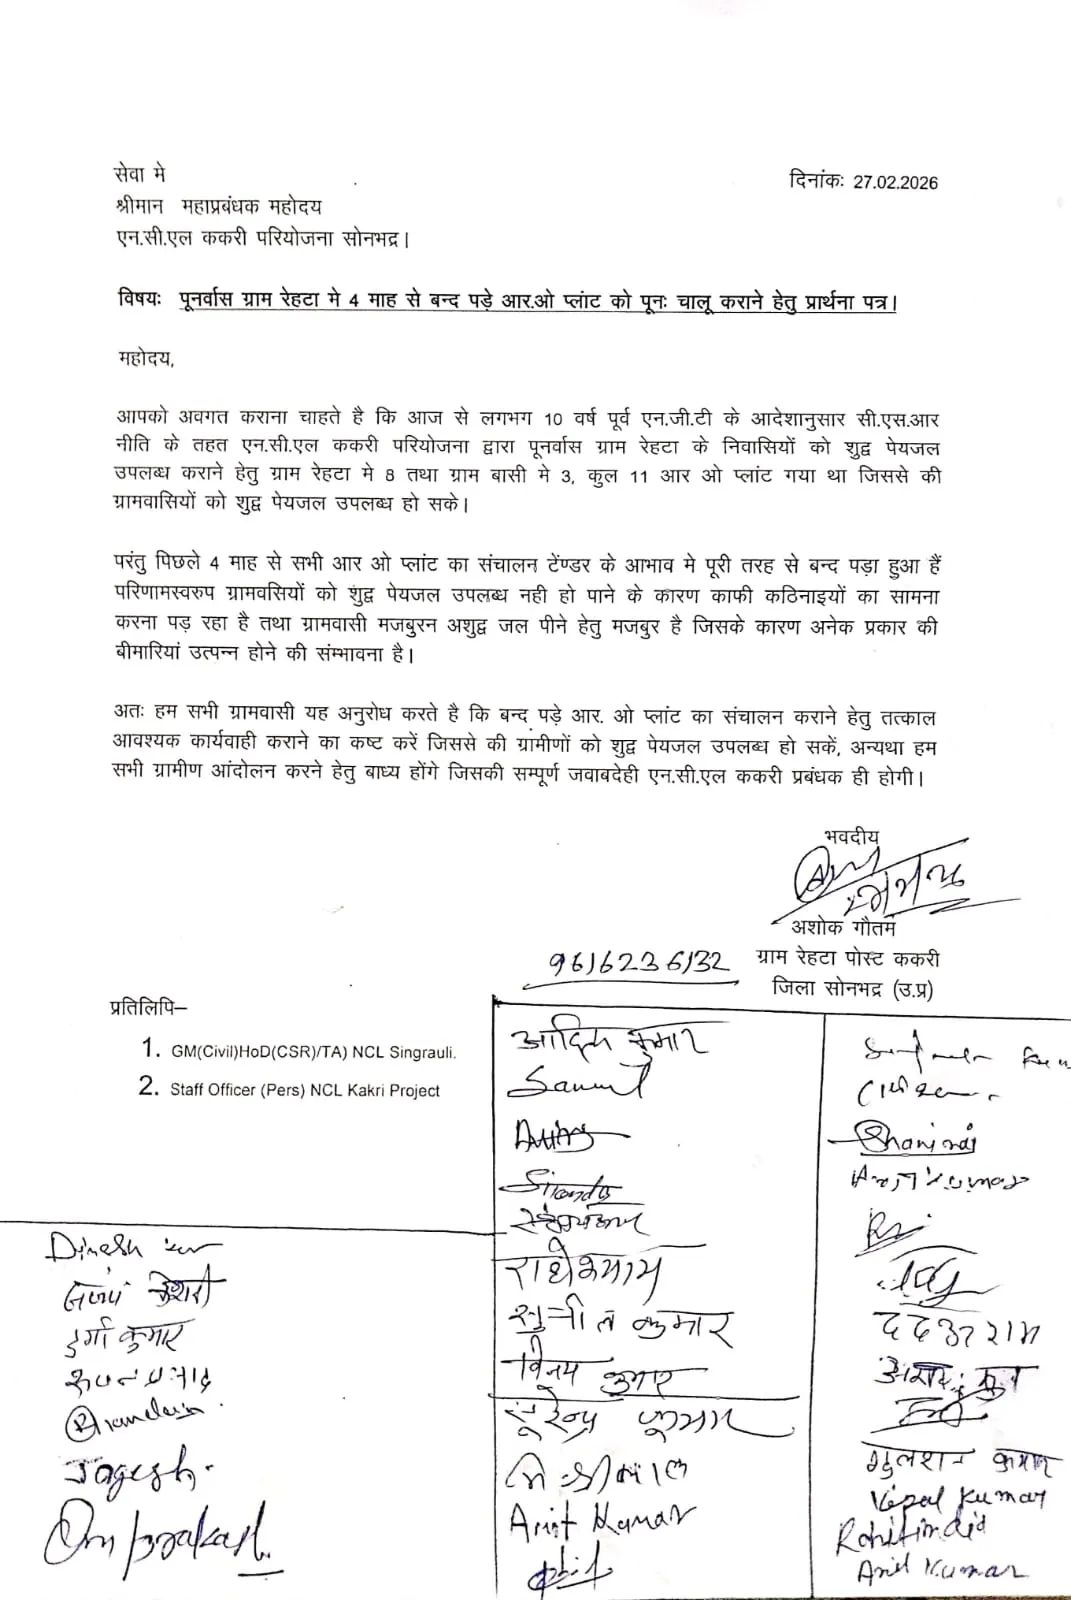 सेवा मे
दिनांकः 27.02.2026
श्रीमान महाप्रबंधक महोदय
एन.सी.एल ककरी परियोजना सोनभद्र।
विषयः पूनर्वास ग्राम रेहटा मे 4 माह से बन्द पड़े आर.ओ प्लांट को पूनः चालू कराने हेतु प्रार्थना पत्र।
महोदय,
आपको अवगत कराना चाहते है कि आज से लगभग 10 वर्ष पूर्व एन.जी.टी के आदेशानुसार सी.एस.आर
नीति के तहत एन.सी.एल ककरी परियोजना द्वारा पूनर्वास ग्राम रेहटा के निवासियों को शुद्व पेयजल
उपलब्ध कराने हेतु ग्राम रेहटा मे 8 तथा ग्राम बासी मे 3, कुल 11 आर ओ प्लांट गया था जिससे की
ग्रामवासियों को शुद्व पेयजल उपलब्ध हो सके।
परंतु पिछले 4 माह से सभी आर ओ प्लांट का संचालन टेंण्डर के आभाव मे पूरी तरह से बन्द पड़ा हुआ हैं
परिणामस्वरुप ग्रामवसियों को शुंद्व पेयजल उपलब्ध नही हो पाने के कारण काफी कठिनाइयों का सामना
करना पड़ रहा है तथा ग्रामवासी मजबुरन अशुद्व जल पीने हेतु मजबुर है जिसके कारण अनेक प्रकार की
बीमारियां उत्पन्न होने की संम्भावना है।
अतः हम सभी ग्रामवासी यह अनुरोध करते है कि बन्द पड़े आर. ओ प्लांट का संचालन कराने हेतु तत्काल
आवश्यक कार्यवाही कराने का कष्ट करें जिससे की ग्रामीणों को शुद्व पेयजल उपलब्ध हो सकें, अन्यथा हम
सभी ग्रामीण आंदोलन करने हेतु बाध्य होंगे जिसकी सम्पूर्ण जवाबदेही एन.सी.एल ककरी प्रबंधक ही होगी।
भवदीय
अशोक गौतम
9616236132
ग्राम रेहटा पोस्ट ककरी
जिला सोनभद्र (उ.प्र)
प्रतिलिपि–
1. GM(Civil)HoD(CSR)/TA) NCL Singrauli.
2. Staff Officer (Pers) NCL Kakri Project
Dinesh
दुर्गा कुमार
Jogesh
Omprakash
कुमार
राधेश्याम
सुनील कुमार
विनय कुमार
सुरेन्द्र कुमार
Amit Kumar
गुलशन कुमार
Vipal Kumar
Anil Kumar